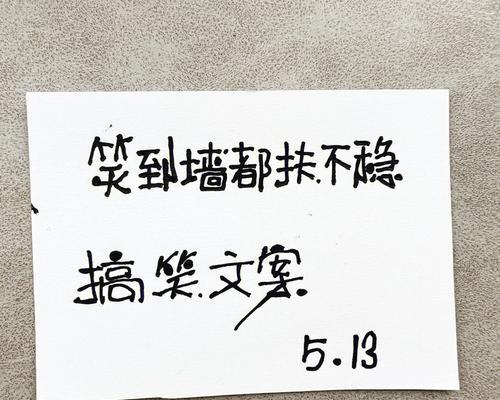 笑到墙都扶不稳
搞笑文案
5.13